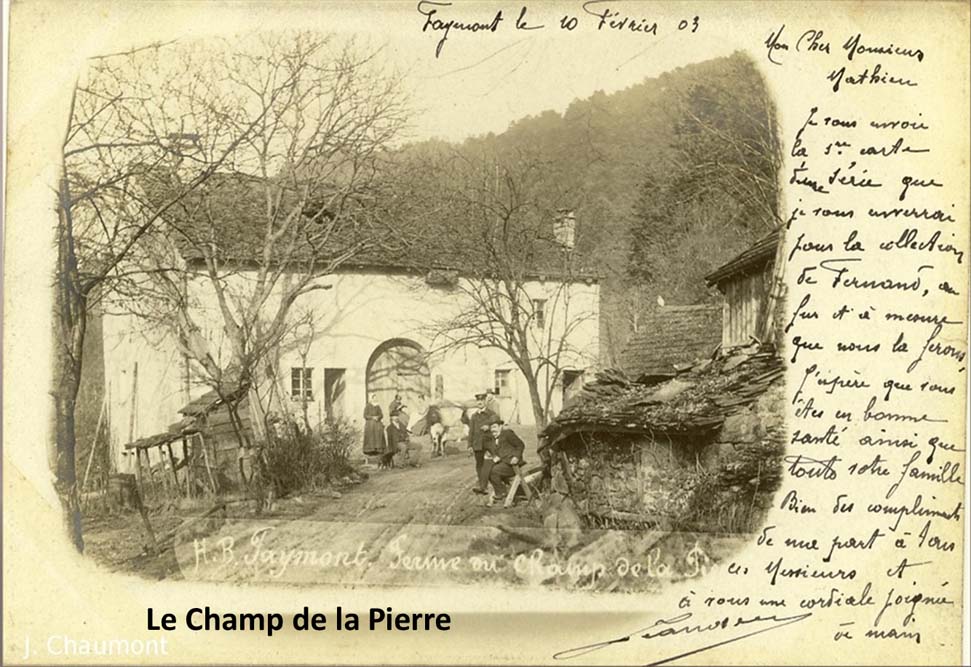 Faymont le 10 Février 03
Mon Cher Monsieur
Mathieu
Je vous envoie
la 1re carte
d'une Série que
je vous enverrai
pour la collection
de Fernand, au
fur et à mesure
que nous la ferons
J'espère que vous
êtes en bonne
santé ainsi que
toute votre famille
Bien des compliments
de ma part à tous
ces Messieurs et
à vous une cordiale poignée
de main
H.B. Faymont. Ferme du Champ de la
Le Champ de la Pierre
J. Chaumont